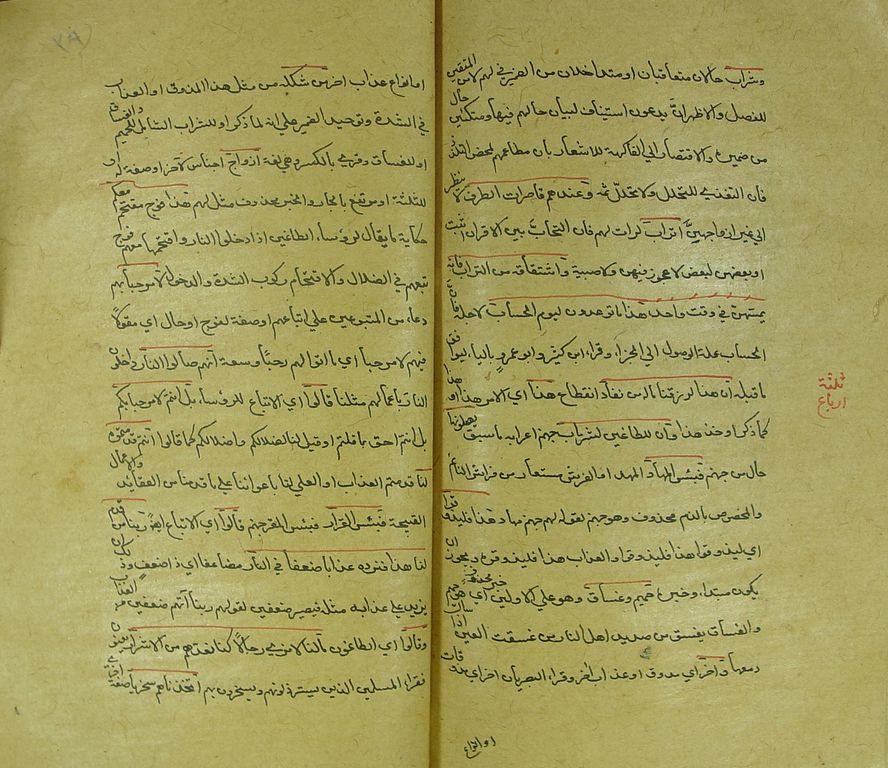 وشراب حالان متعاقبان او متداخلان من الضمير في لهم لا من المتقين
للفصل والاظهر ان يدعون استيناف لبيان حالهم فيها ومتكئين حال
من ضميره والاقتصار الى الفاكهة للاشعار بان مطاعمهم لمحض التلذذ
فان التغذي للتحلل ولا تحلل ثمه وعندهم قاصرات الطرف لا ينظرن
الى غير ازواجهن اتراب لدات لهم فان التحاب بين الاقران اثبت
او بعضهن لبعض لا عجوز فيهن ولا صبية واشتقاقه من التراب فانه
يمسهن في وقت واحد هذا ما توعدون ليوم الحساب لاجله فان
الحساب علة الوصول الى الجزاء وقراء ابن كثير وابو عمرو بالياء ليوافق
ما قبله ان هذا لرزقنا ماله من نفاد انقطاع هذا اي الامر هذا او هذا
كما ذكر او خذ هذا وان للطاغين لشر مآب جهنم اعرابه ما سبق يصلونها
حال من جهنم فبئس المهاد المهد او الفرش مستعار من فراش النائم
والمخصوص بالذم محذوف وهو جهنم لقوله لهم جهنم مهاد هذا فليذوقوه
اي ليذوقوا هذا فليذوقوه او العذاب هذا فليذوقوه ويجوز ان
يكون مبتداء وخبره حميم وغساق وهو على الاولين خبر محذوف اي هو حميم
والغساق ما يغسق من صديد اهل النار من غسقت العين اذا سال
دمعها وآخر اي مذوق او عذاب آخر وقراء البصريان اخر اي مذوقات
او انواع
ثلثة
ارباع
او انواع عذاب اخر من شكله من مثل هذا المذوق او العذاب
في الشدة وتوحيد الضمير على انه لما ذكر او للشراب الشامل للحميم والغساق
او للغساق وقرئ بالكسر وهي لغة ازواج اجناس لآخر او صفة له او
للثلثة او مرتفع بالجار والخبر محذوف مثل لهم هذا فوج مقتحم معكم
حكاية ما يقال لرؤساء الطاغين اذا دخلوا النار واقتحمها معهم فوج
تبعهم في الضلال والاقتحام ركوب الشدة والدخول فيها لا مرحبا بهم
دعاء من المتبوعين على اتباعهم او صفة لفوج او حال اي مقولا
فيهم لا مرحبا اي ما اتوا بهم رحبا وسعة انهم صالوا النار داخلون
النار باعمالهم مثلنا قالوا اي الاتباع للرؤساء بل انتم لا مرحبا بكم
بل انتم احق بما قلتم او قيل لنا لضلالكم واضلالكم كما قالوا انتم قدمتموه
لنا قدمتم العذاب او الصلي لنا باغوائنا على ما قدمناه من العقائد والاعمال
القبيحة فبئس القرار فبئس المقر جهنم قالوا اي الاتباع ايضا ربنا من قدم
لنا هذا فزده عذابا ضعفا في النار مضاعفا اي ذا ضعف وذلك ان
يزيد على عذابه مثله فيصير ضعفين لقولهم ربنا آتهم ضعفين من العذاب
وقالوا اي الطاغون مالنا لا نرى رجالا كنا نعدهم من الاشرار يعنون
فقراء المسلمين الذين يسترذلونهم ويسخرون بهم اتخذناهم سخريا صفة اخرى